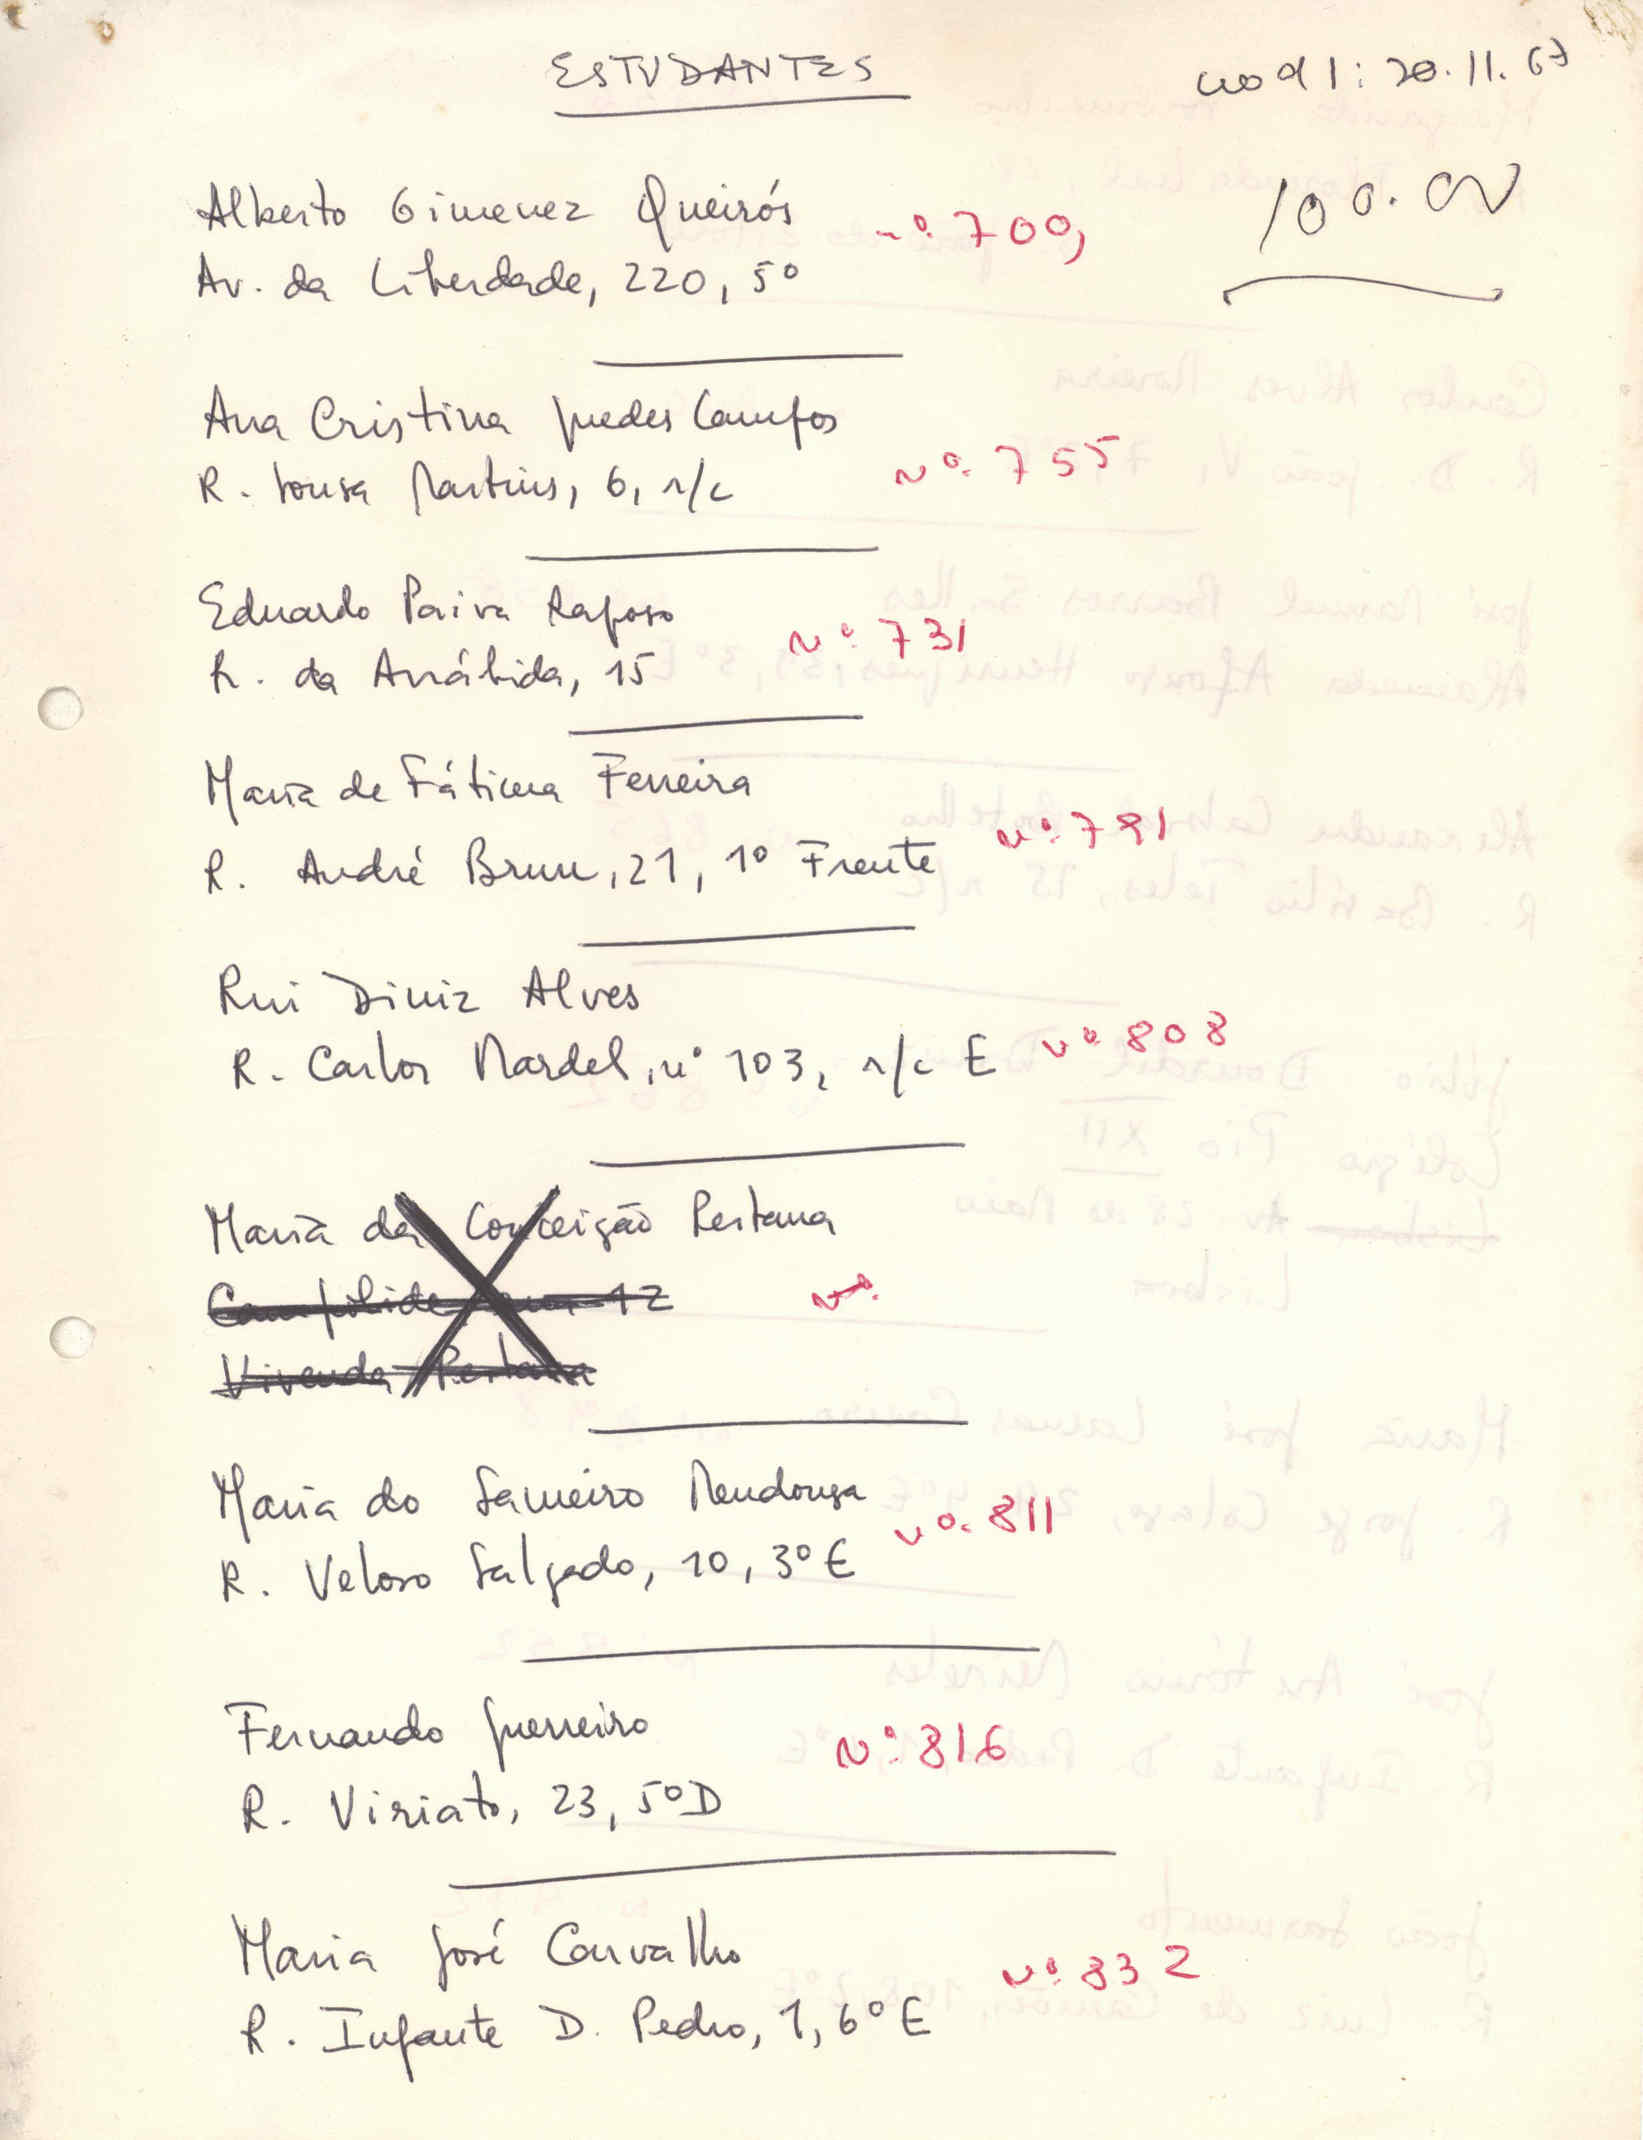 ESTUDANTES
20.11.67
100.00
Alberto Gimenez Queirós
nº. 700,
Av. da Liberdade, 220, 5º
Ana Cristina Guedes Campos
nº. 755
R. Sousa Martins, 6, r/c
Eduardo Paiva Raposo
nº. 731
R. da Arrábida, 15
Maria de Fátima Ferreira
nº. 791
R. André Brun, 21, 1º Frente
Rui Diniz Alves
nº 808
R. Carlos Mardel, nº 103, r/c E
Maria da Conceição Pestana
Campolide rua 12
nº.
Vivenda Pestana
Maria do Sameiro Mendonça
nº. 811
R. Veloso Salgado, 10, 3º E
Fernando Guerreiro
Nº. 816
R. Viriato, 23, 5º D
Maria José Carvalho
nº. 832
R. Infante D. Pedro, 1, 6º E